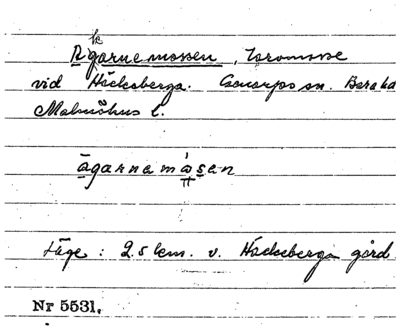 Ägarnemossen, Toromosse
vid Häckeberga. Genarps sn. Bara hd
Malmöhus l.
ägarnamåsen
Läge: 2.5 km. v. Häckeberga gård
Nr 5531.